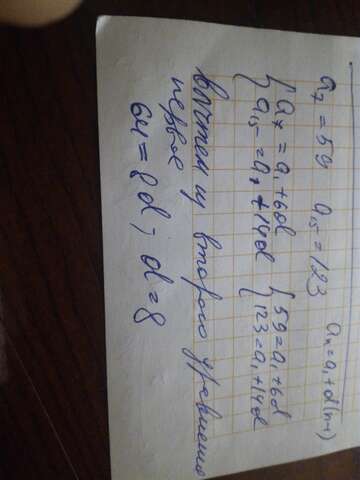 a₇ = 59 a₁₅ = 123 aₙ = a₁ + d(n-1)
{ a₇ = a₁ + 6d { 59 = a₁ + 6d
{ a₁₅ = a₁ + 14d { 123 = a₁ + 14d
вычтем из второго уравнения
первое
64 = 8d ; d = 8